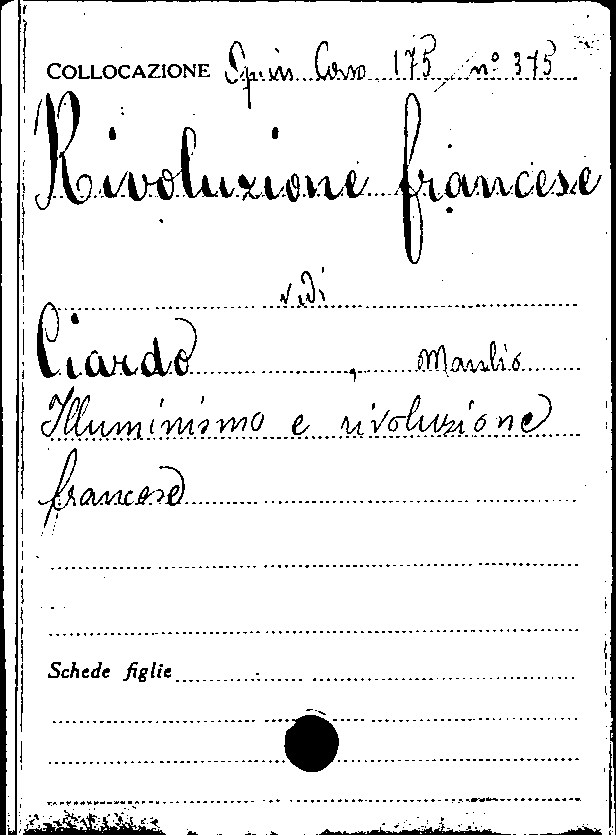 COLLOCAZIONE 175 nº 375
Rivoluzione francese
vedi
Ciardo, Manlio
Illuminismo e rivoluzione
francese
Schede figlie